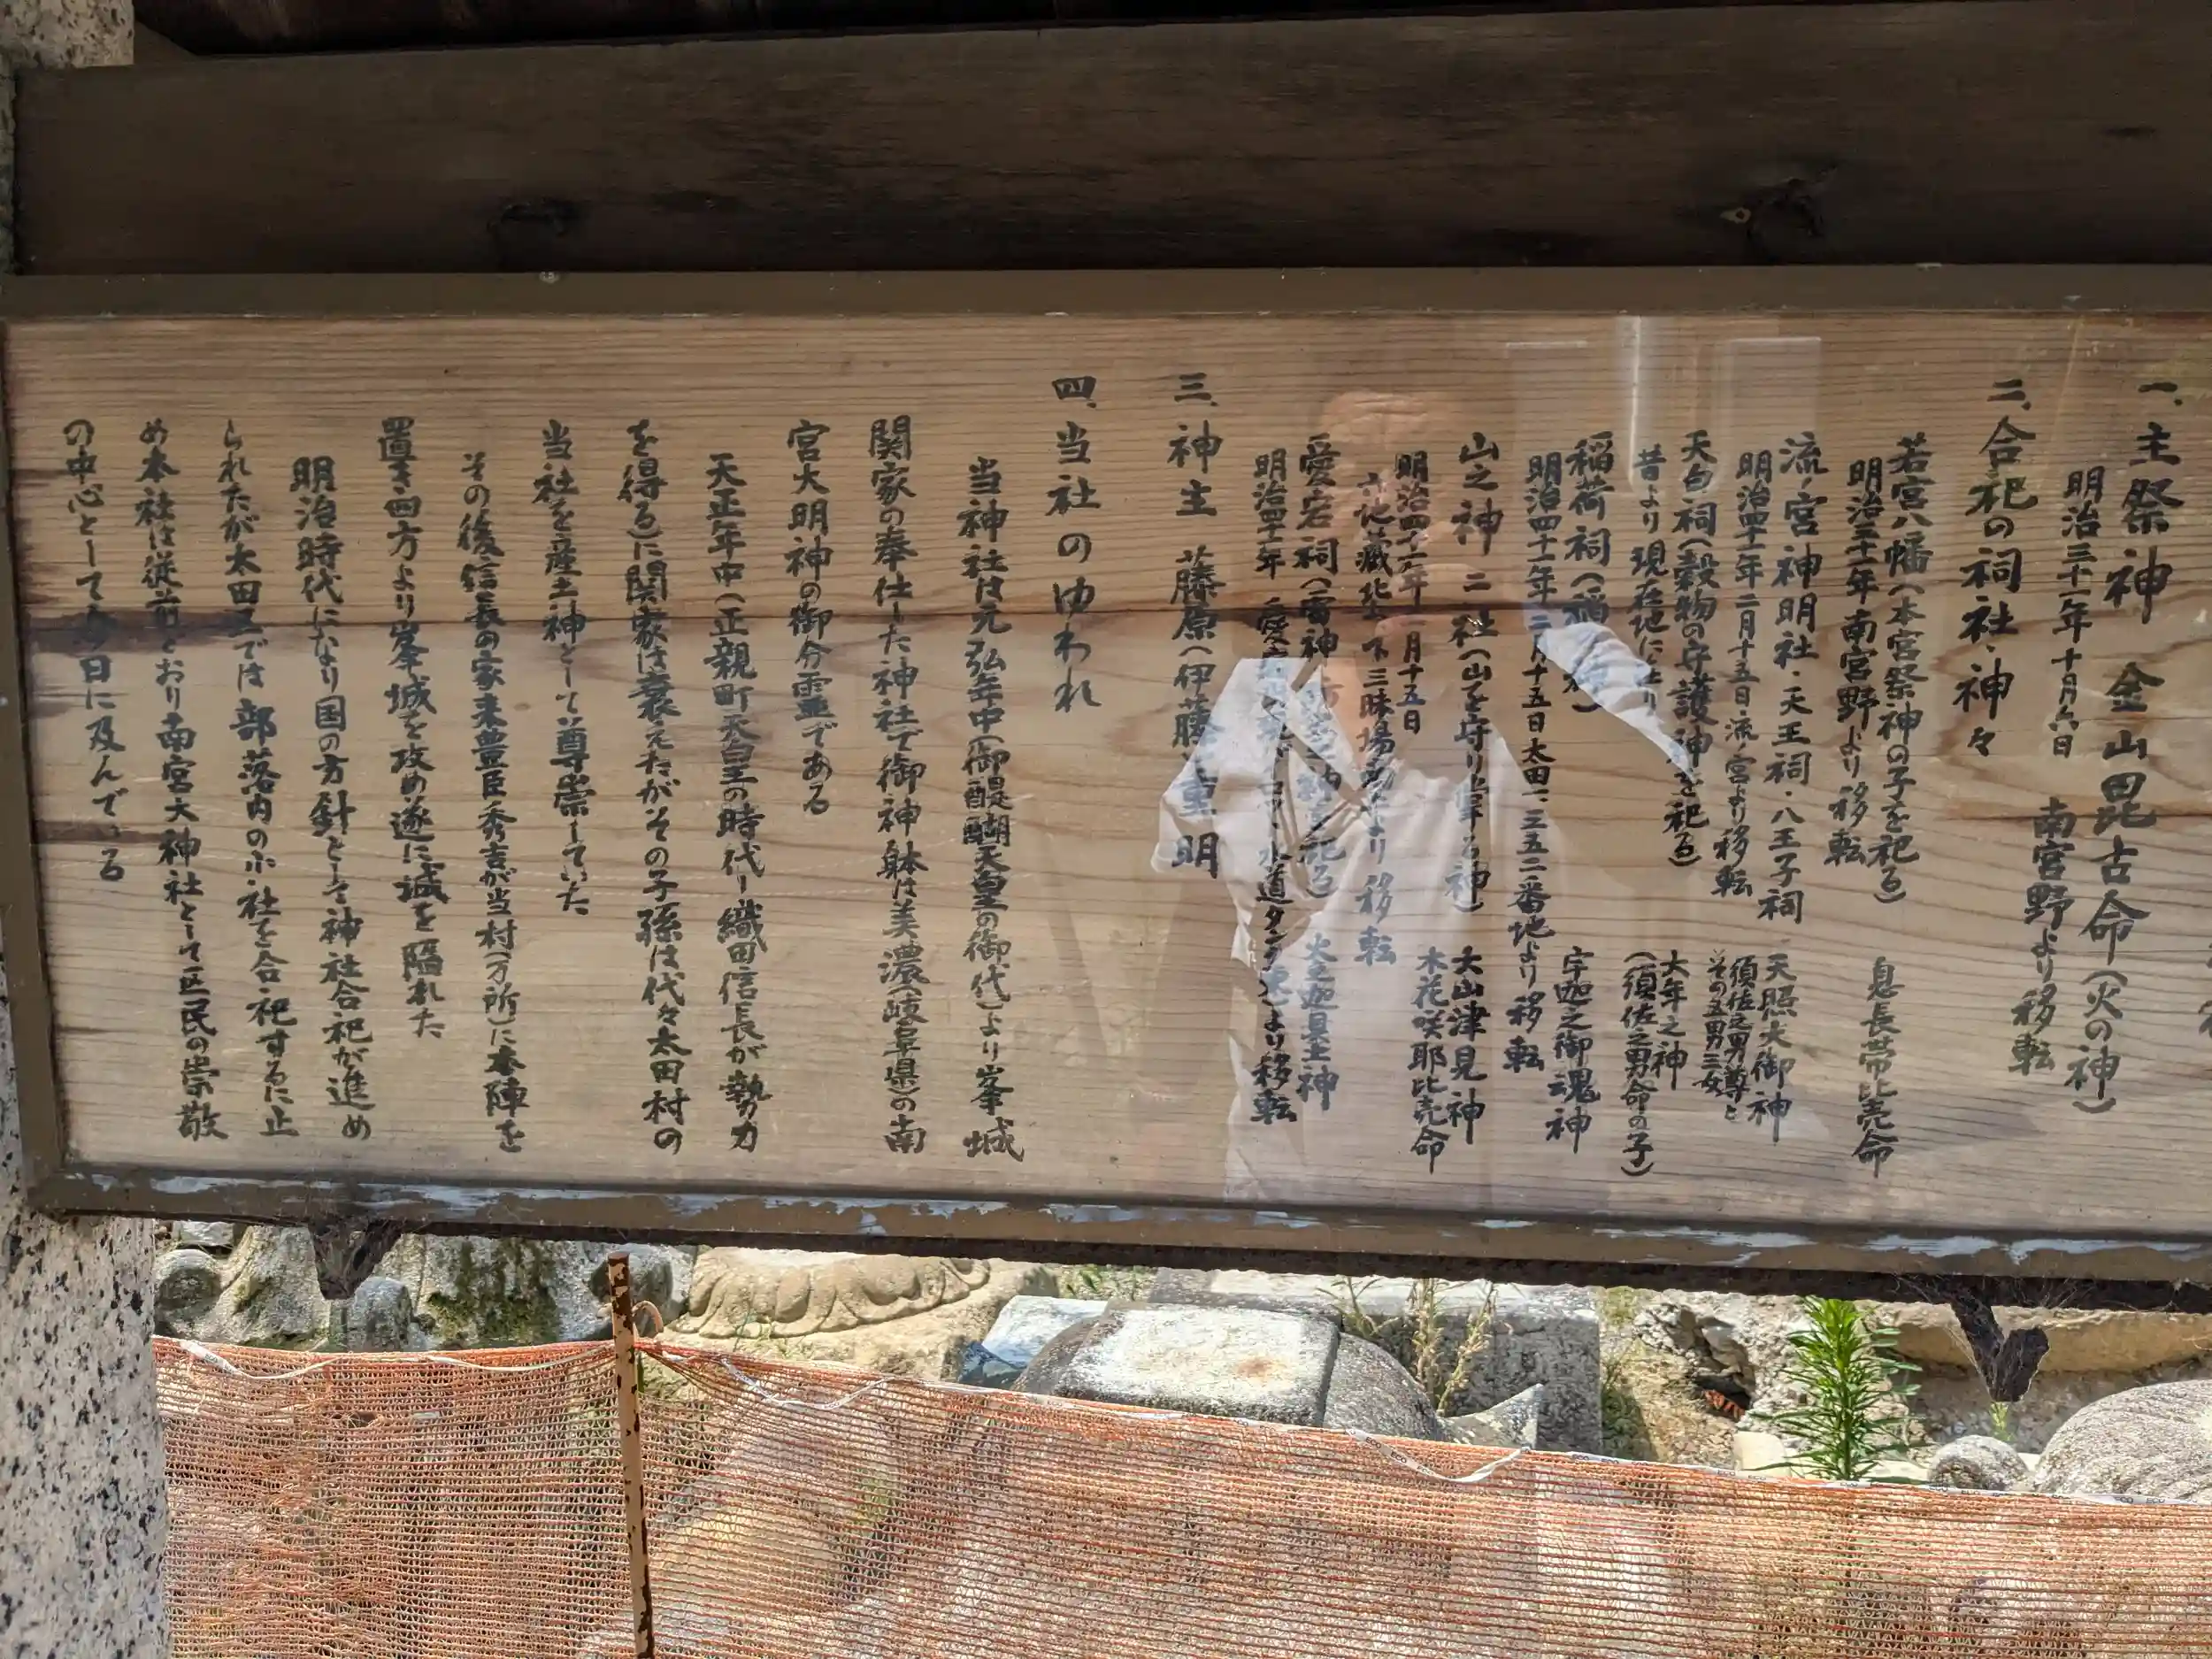 一、主祭神 金山毘古命(火の神)
明治三十一年十月六日 南宮野より移転
二、合祀の祠社・神々
若宮八幡(本宮祭神の子を祀る) 息長帯比売命
明治三十一年南宮野より移転
流ノ宮神明社・天王祠・八王子祠 天照大御神
須佐之男尊と
その五男三女
明治四十一年二月十五日流ノ宮より移転
天白祠(穀物の守護神を祀る) 大年之神
(須佐之男命の子)
昔より現在地に
稲荷祠(稲 宇迦之御魂神
明治四十一年二月十五日太田一、三五二番地より移転
山之神二社(山を守り 神) 大山津見神
木花咲耶比売命
明治四十一年 月十五日
六地蔵北 下三昧場 より移転
愛宕祠(雷神 を祀る) 火之迦具土神
明治四十一年 水道タンク より移転
三、神主 藤原(伊藤) 重明
四、当社のゆわれ
当神社は元弘年中(御醍醐天皇の御代)より峯城
関家の奉仕した神社で御神躰は美濃(岐阜県)の南
宮大明神の御分霊である
天正年中(正親町天皇の時代ー織田信長が勢力
を得る)に関家は衰えたがその子孫は代々太田村の
当社を産土神として尊崇していた
その後信長の家来豊臣秀吉が当村(万所)に本陣を
置き四方より峯城を攻め遂に城を陥れた
明治時代になり国の方針として神社合祀が進め
られたが太田 では部落内の小社を合祀するに止
め本社は従前どおり南宮大神社として区民の崇敬
の中心として今日に及んでいる